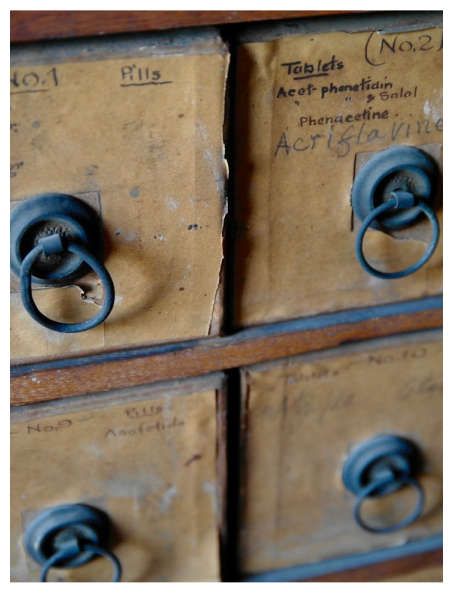 No.1 Pills
(No.2)
Tablets
Acet-phenetidin
" " & Salol
Phenacetine.
Acriflavine
No.9 Pills
Asafetida
No.10